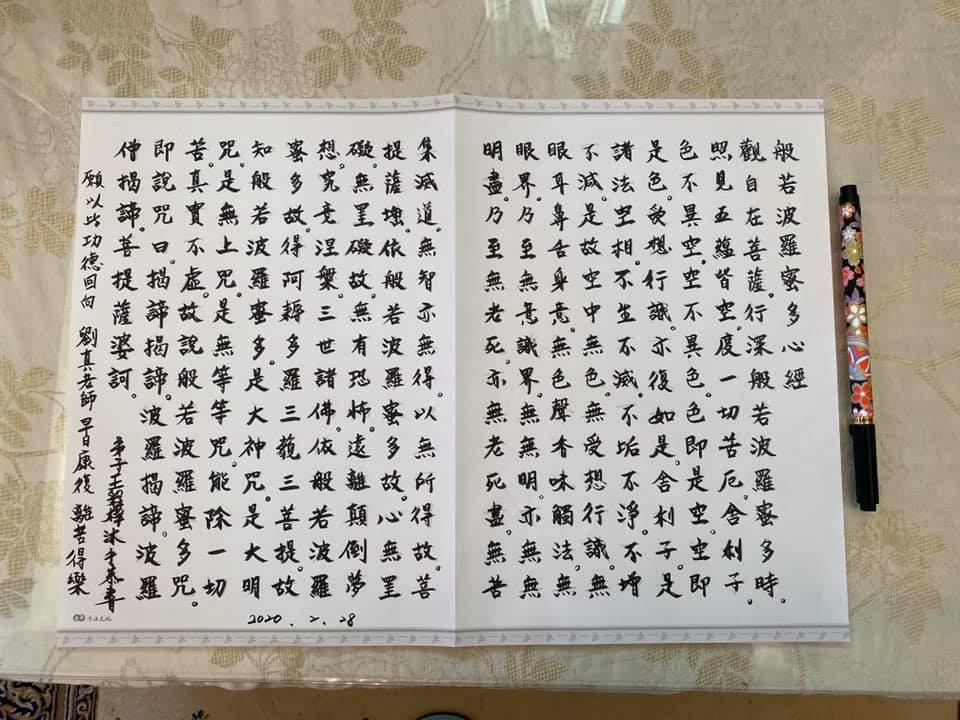 般若波羅蜜多心經
觀自在菩薩。行深般若波羅蜜多時。
照見五蘊皆空。度一切苦厄。舍利子。
色不異空。空不異色。色即是空。空即
是色。受想行識。亦復如是。舍利子是
諸法空相。不生不滅。不垢不淨。不增
不減。是故空中無色。無受想行識。無
眼耳鼻舌身意。無色聲香味觸法。無
眼界。乃至無意識界。無無明。亦無無
明盡。乃至無老死。亦無老死盡。無苦
集滅道。無智亦無得。以無所得故。菩
提薩埵。依般若波羅蜜多故。心無罣
礙。無罣礙故。無有恐怖。遠離顛倒夢
想。究竟涅槃。三世諸佛。依般若波羅
蜜多故。得阿耨多羅三藐三菩提。故
知般若波羅蜜多。是大神咒。是大明
咒。是無上咒。是無等等咒。能除一切
苦。真實不虛。故說般若波羅蜜多咒。
即說咒曰。揭諦揭諦。波羅揭諦。波羅
僧揭諦菩提薩婆訶。
弟子王 沐手恭書
願以此功德回向 劉真老師 早日康復 離苦得樂
2020.2.28